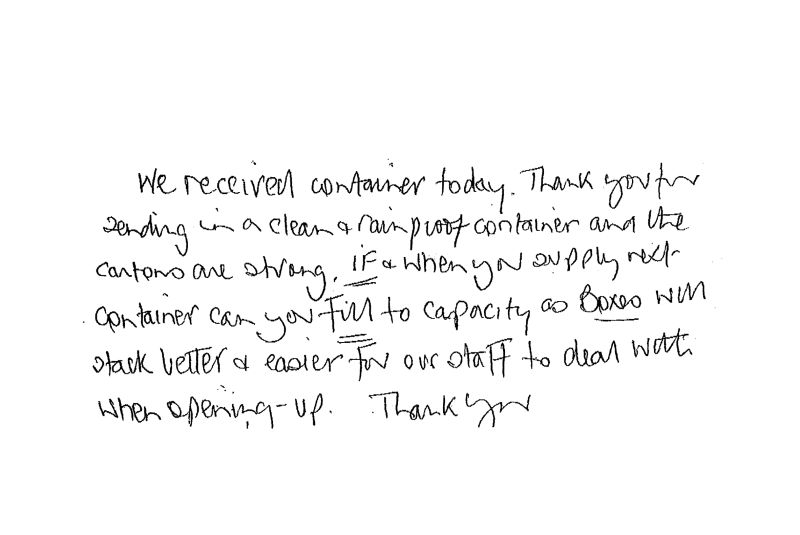 We received container today. Thank you for
sending in a clean & rainproof container and the
cartons are strong. IF & when you supply next
container can you Fill to capacity as Boxes will
stack better & easier for our staff to deal with
when opening-up. Thank you